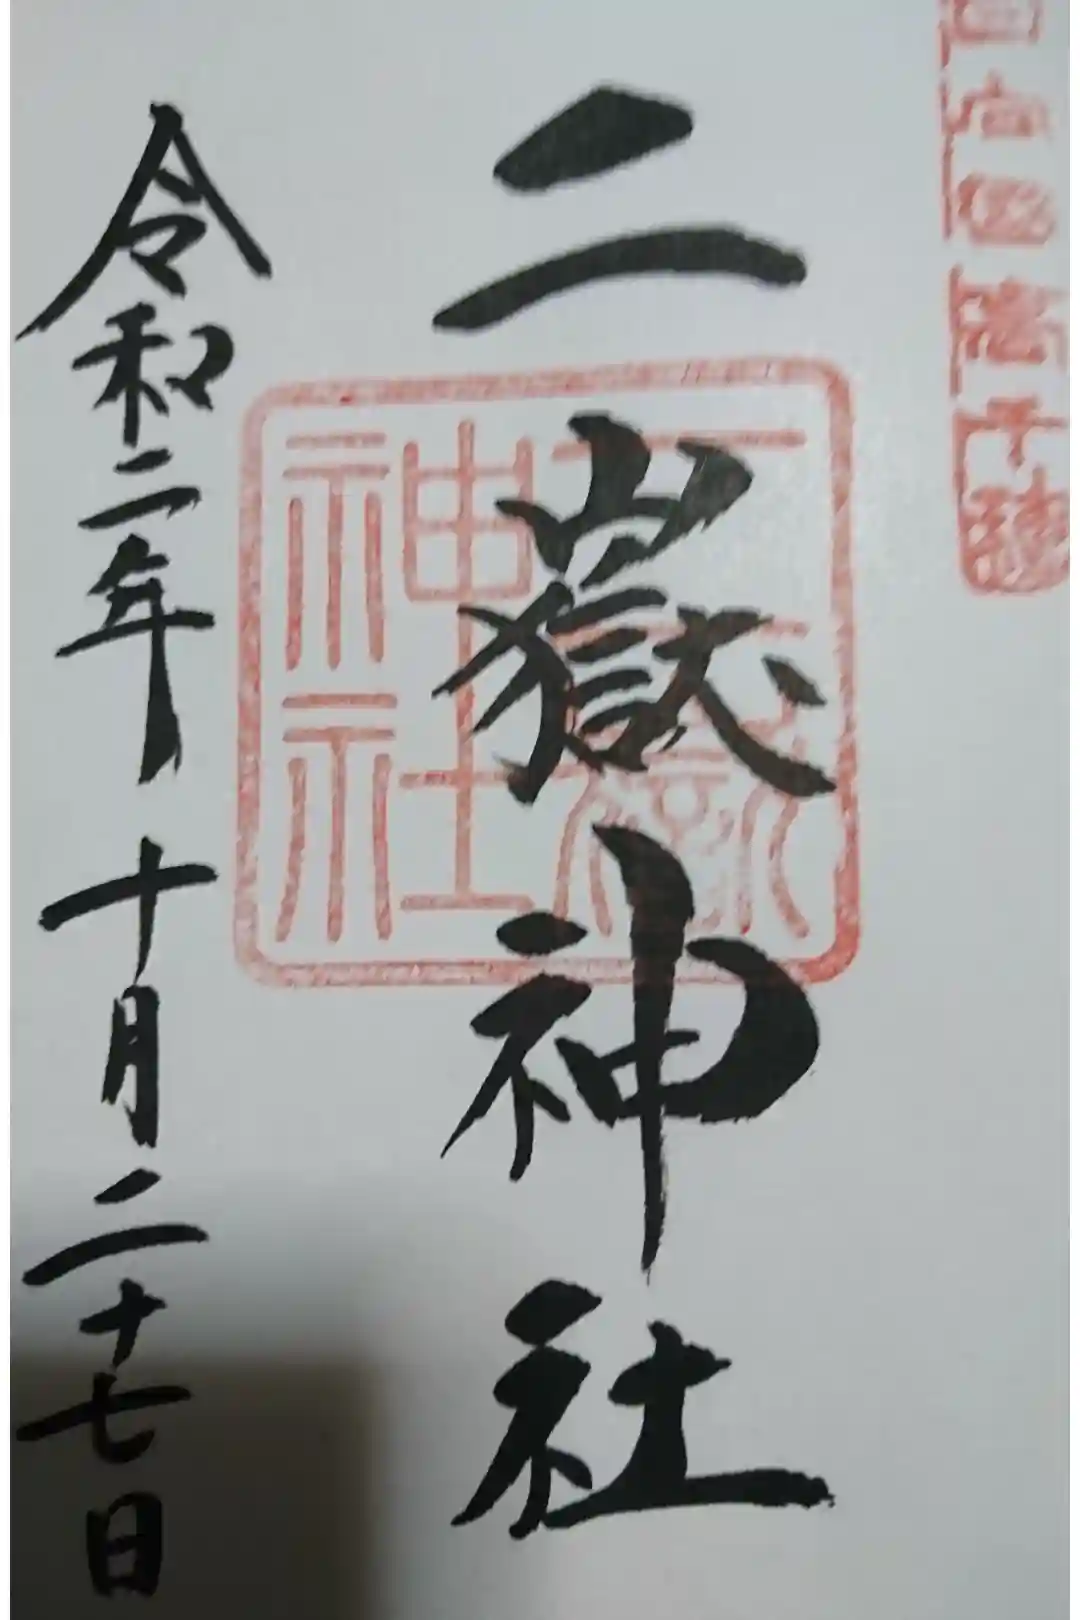 二嶽神社
二嶽神社
令和二年 十月二十七日